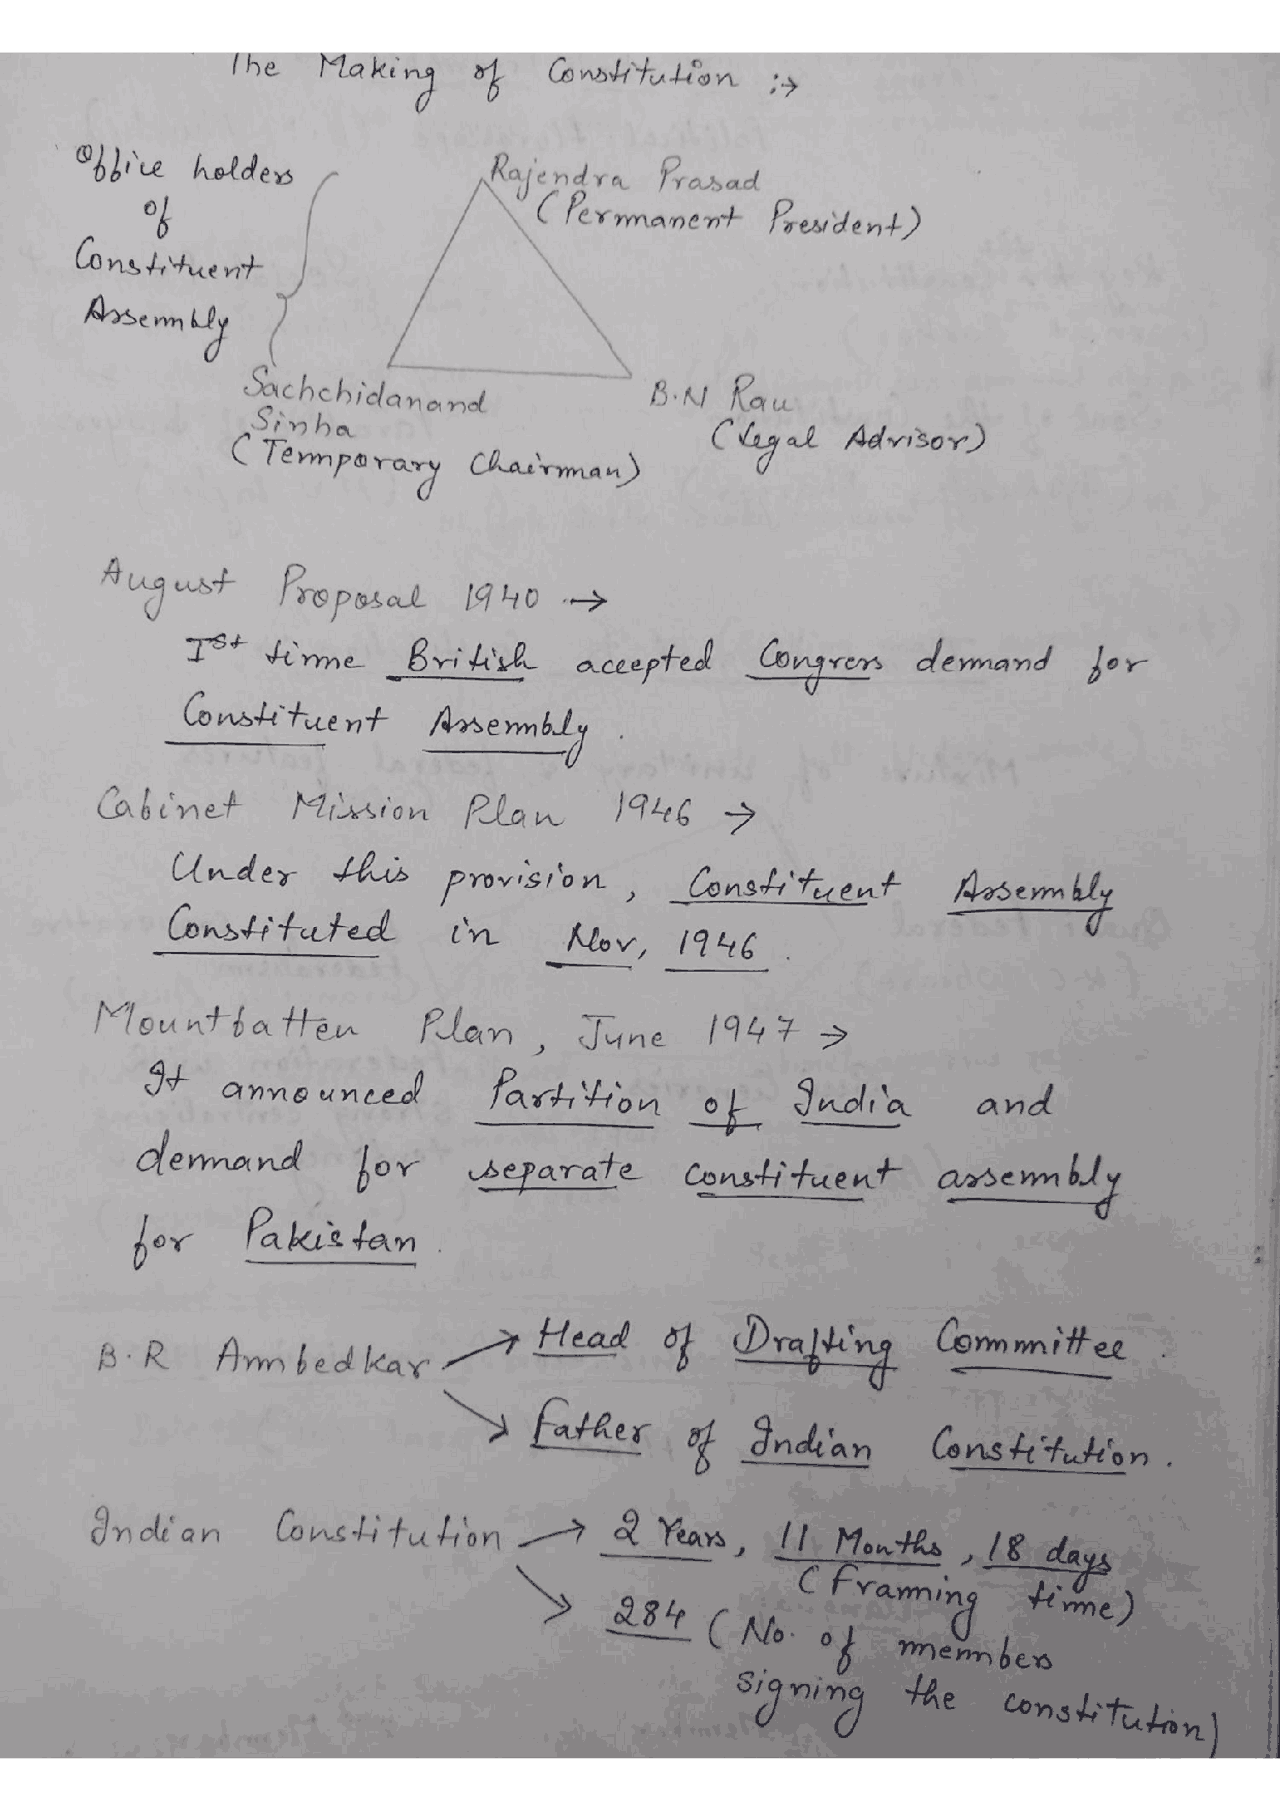 The Making of Constitution :→
Office holders
of
Constituent
Assembly
Rajendra Prasad
(Permanent President)
Sachchidanand
Sinha
(Temporary Chairman)
B.N Rau
(Legal Advisor)
August Proposal 1940 →
Ist time British accepted Congress demand for
Constituent Assembly.
Cabinet Mission Plan 1946 →
Under this provision, Constituent Assembly
Constituted in Nov, 1946.
Mountbatten Plan, June 1947 →
It announced Partition of India and
demand for separate constituent assembly
for Pakistan.
B.R Ambedkar → Head of Drafting Committee.
→ Father of Indian Constitution.
Indian Constitution → 2 Years, 11 Months, 18 days
(Framing time)
→ 284 (No. of members
signing the constitution)